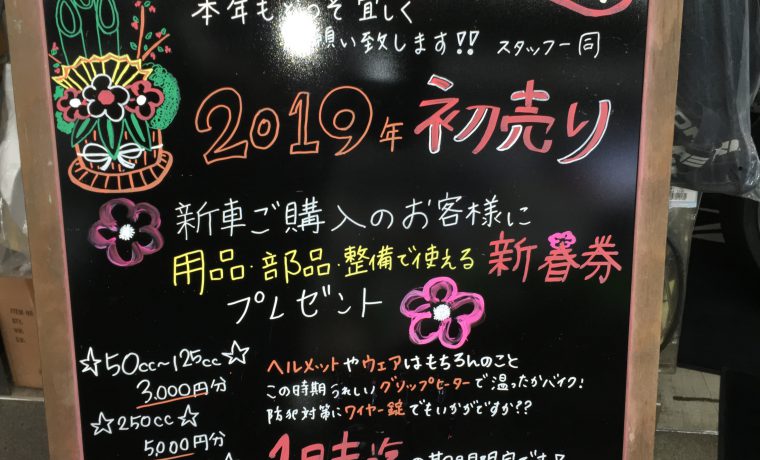 本年もどうぞ宜しく
願い致します!! スタッフ一同
2019年 初売り
新車ご購入のお客様に
用品・部品・整備で使える 新春券
プレゼント
☆50cc~125cc☆
3,000円分
☆250cc☆
5,000円分
ヘルメットやウェアはもちろんのこと
この時期うれしいグリップヒーターで温ったかバイク!
防犯対策にワイヤー錠でもいかがですか??
1月末迄の期間限定です